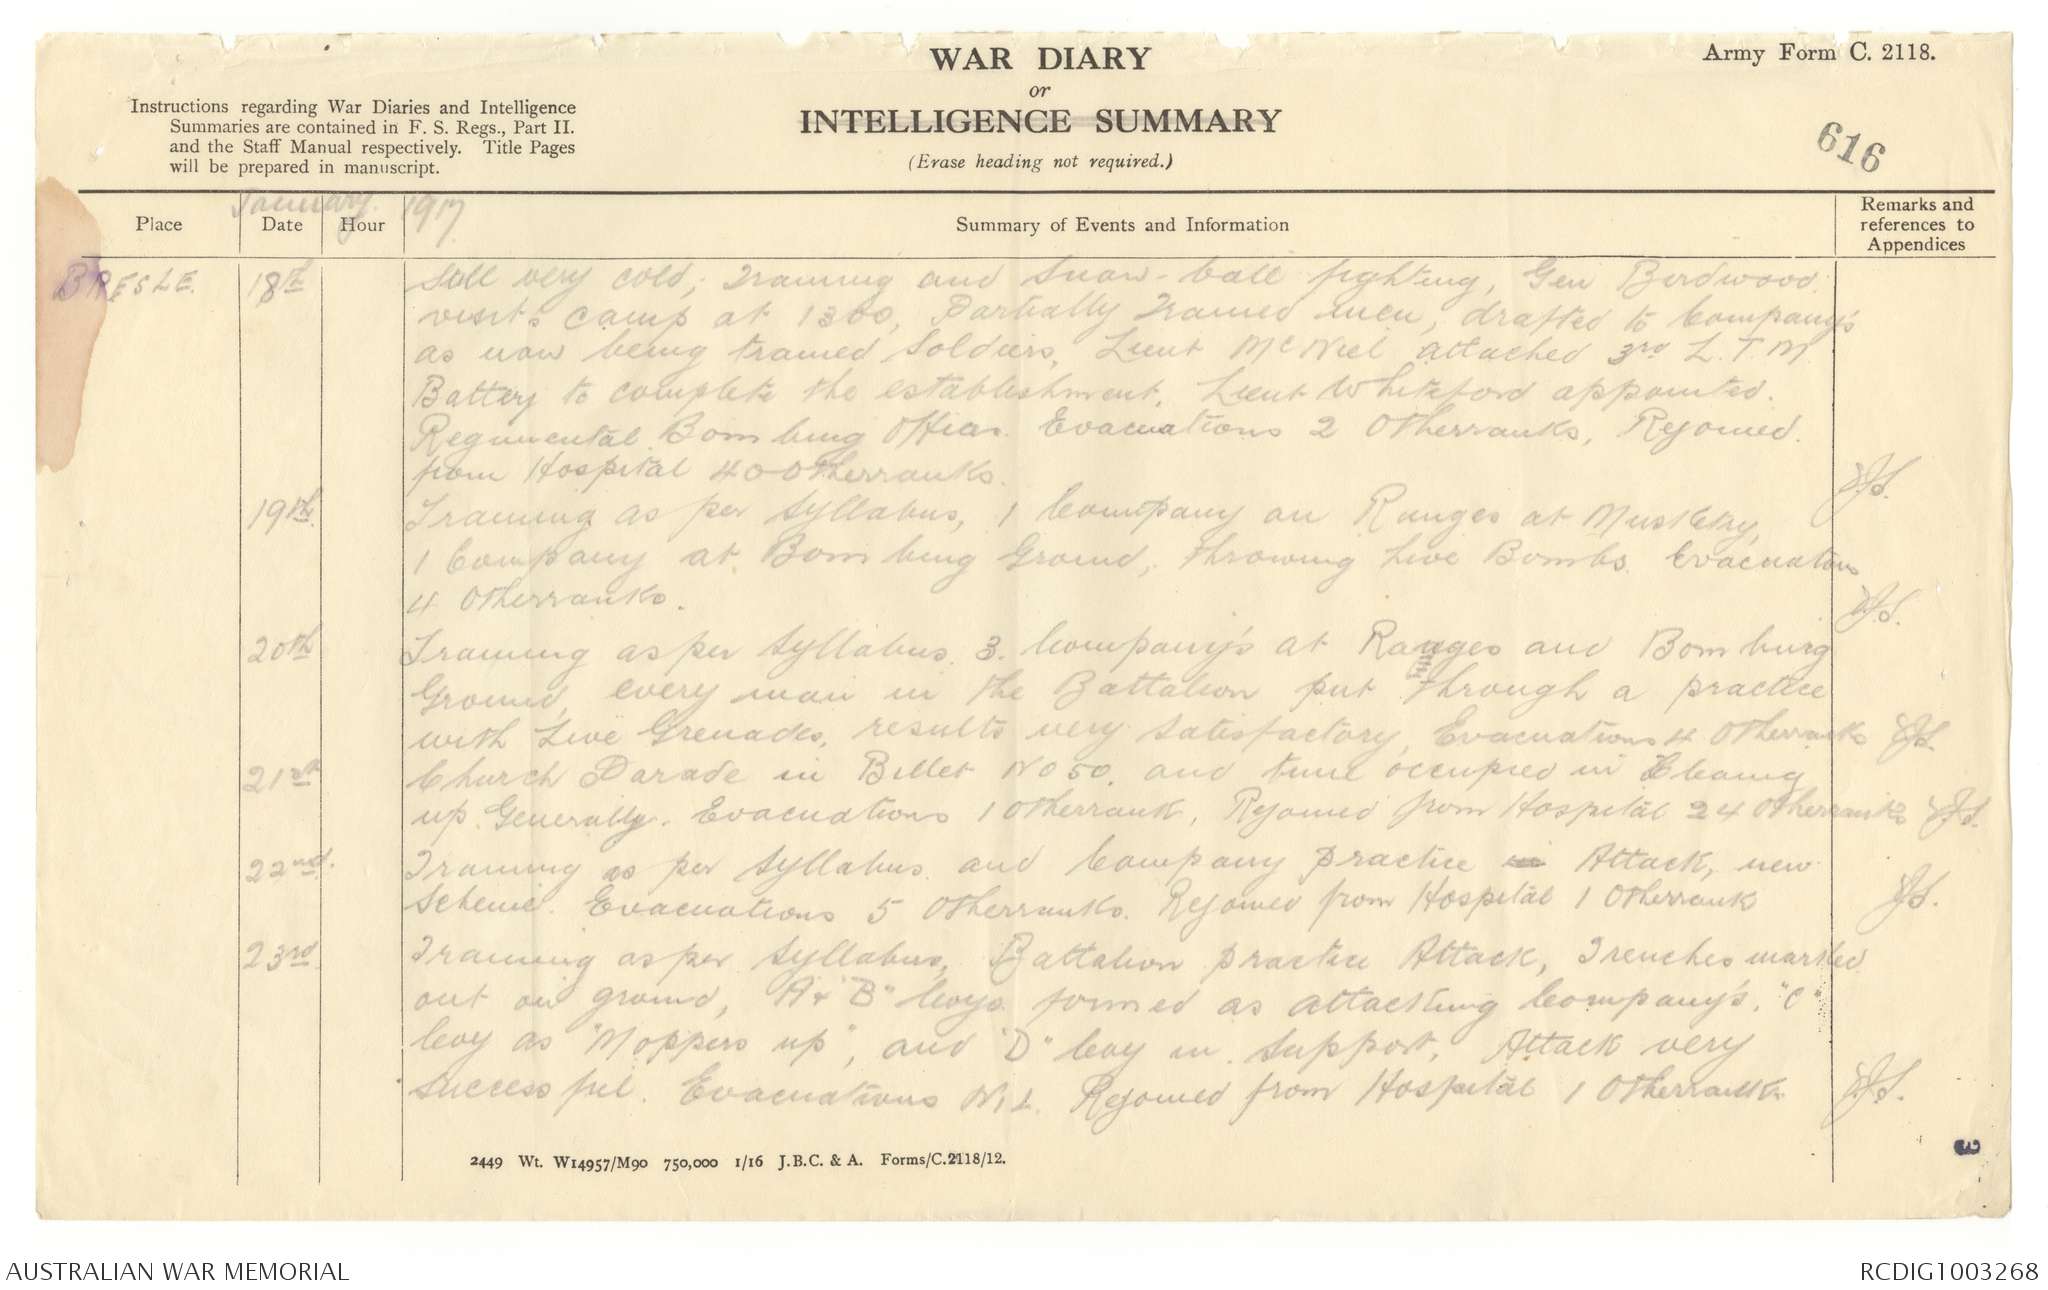 WAR DIARY
or
INTELLIGENCE SUMMARY
(Erase heading not required.)
Army Form C. 2118.
616
Instructions regarding War Diaries and Intelligence
Summaries are contained in F. S. Regs., Part II.
and the Staff Manual respectively. Title Pages
will be prepared in manuscript.
January 1917
Place Date Hour Summary of Events and Information Remarks and references to Appendices
BRESLE. 18th Still very cold, Training and Snow-ball fighting, Gen Birdwood
visits camp at 1300, Partially Trained men, drafted to Company's
as now being trained Soldiers, Lieut McNiel attached 3rd L.T.M.
Battery to complete the establishment, Lieut Whiteford appointed.
Regimental Bombing Officer. Evacuations 2 Otherranks, Rejoined.
from Hospital 40 Otherranks.
19th Training as per Syllabus, 1 Company on Ranges at Musketry,
1 Company at Bombing Ground, throwing Live Bombs. Evacuations
4 Otherranks.
20th Training as per Syllabus. 3. Company's at Ranges and Bombing
Ground, every man in the Battalion put through a practice
with Live Grenades, results very satisfactory, Evacuations 4 Otherranks
21st Church Parade in Billet No 50. and time occupied in Cleaning
up Generally. Evacuations 1 Otherrank, Rejoined from Hospital 24 Otherranks
22nd. Training as per Syllabus and Company practice in Attack, new
Scheme. Evacuations 5 Otherranks. Rejoined from Hospital 1 Otherrank
23rd Training as per Syllabus, Battalion practice Attack, Trenches marked
out on ground, "A & "B" Coys formed as attacking Company's, "C"
Coy as "Moppers up", and "D" Coy in support, Attack very
successful. Evacuations NiL. Rejoined from Hospital 1 Otherrank
2449 Wt. W14957/M90 750,000 1/16 J.B.C. & A. Forms/C.2118/12.
AUSTRALIAN WAR MEMORIAL
RCDIG1003268